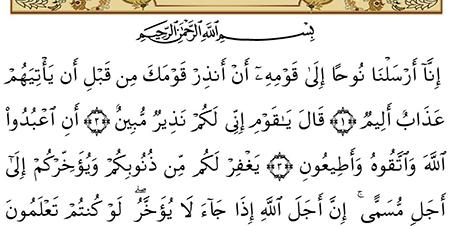 بِسْمِ ٱللَّهِ ٱلرَّحْمَٰنِ ٱلرَّحِيمِ
إِنَّآ أَرْسَلْنَا نُوحًا إِلَىٰ قَوْمِهِۦٓ أَنْ أَنذِرْ قَوْمَكَ مِن قَبْلِ أَن يَأْتِيَهُمْ
عَذَابٌ أَلِيمٌ ﴿١﴾ قَالَ يَٰقَوْمِ إِنِّى لَكُمْ نَذِيرٌ مُّبِينٌ ﴿٢﴾ أَنِ ٱعْبُدُوا۟
ٱللَّهَ وَٱتَّقُوهُ وَأَطِيعُونِ ﴿٣﴾ يَغْفِرْ لَكُم مِّن ذُنُوبِكُمْ وَيُؤَخِّرْكُمْ إِلَىٰٓ
أَجَلٍ مُّسَمًّى ۚ إِنَّ أَجَلَ ٱللَّهِ إِذَا جَآءَ لَا يُؤَخَّرُ ۖ لَوْ كُنتُمْ تَعْلَمُونَ